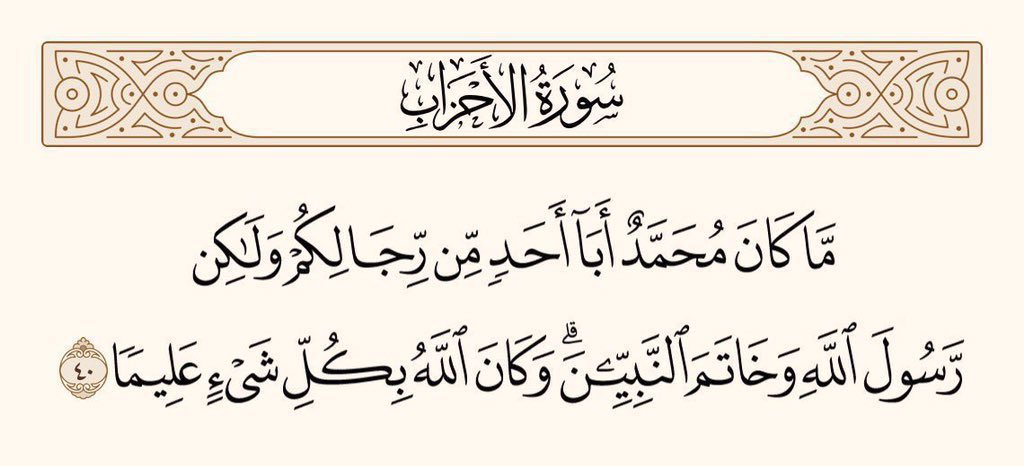 سُورَةُ الأَحْزَابِ
مَّا كَانَ مُحَمَّدٌ أَبَآ أَحَدٍ مِّن رِّجَالِكُمْ وَلَٰكِن
رَّسُولَ ٱللَّهِ وَخَاتَمَ ٱلنَّبِيِّـۧنَۗ وَكَانَ ٱللَّهُ بِكُلِّ شَىْءٍ عَلِيمًا ٤٠